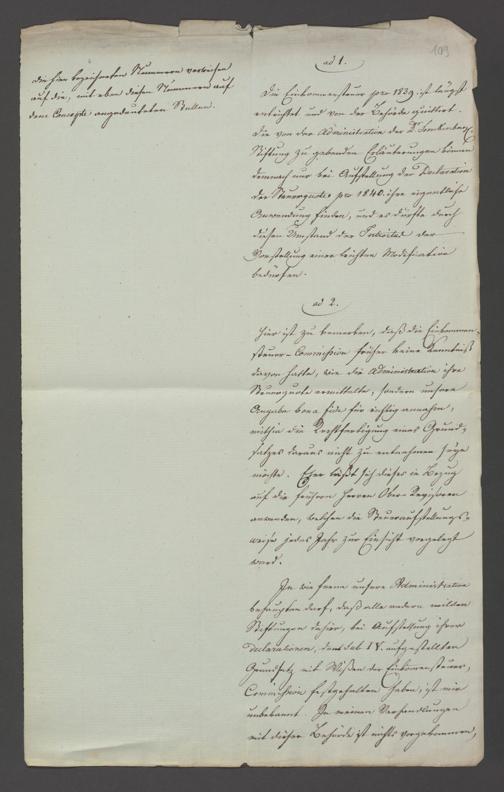 109
Die hier bezeichneten Nummern verweisen
auf die, mit eben diesen Nummern auf
dem Concepte angedeuteten Stellen.
ad 1.
Die Einkommensteuer pro 1839. ist längst
entrichtet und von der Behörde quittirt.
Die von der Administration der Dr. Senckenberg.
Stiftung zu gebenden Erläuterungen können
demnach nur bei Aufstellung der Declaration
der Steuerquote pro 1840. ihre eigentliche
Anwendung finden, und es dürfte durch
diesen Umstand der der
Vorstellung einer leichten Modification
bedürfen.
ad 2.
Hier ist zu bemerken, daß die Einkommen-
steuer-Commission früher keine Kenntniß
davon hatte, wie die Administration ihre
Steuerquote ermittelte, sondern unsere
Angabe bona fide für richtig annahm,
mithin die Rechtfertigung eines Grund-
satzes daraus nicht zu entnehmen seyn
möchte. Eher läßt sich dieses in Bezug
auf die frühern Herren Ober-Revisoren
anwenden, welchen die Steueraufstellungs-
weise jedes Jahr zur Einsicht vorgelegt
ward.
In wie ferne unsere Administration
behaupten darf, daß alle andern milden
Stiftungen dahier, bei Aufstellung ihrer
Declarationen, den sub IV. aufgestellten
Grundsatz mit Wissen der Einkommensteuer-
Commission festgehalten haben, ist mir
unbekannt. In meinen Verhandlungen
mit dieser Behörde ist nichts vorgekommen,